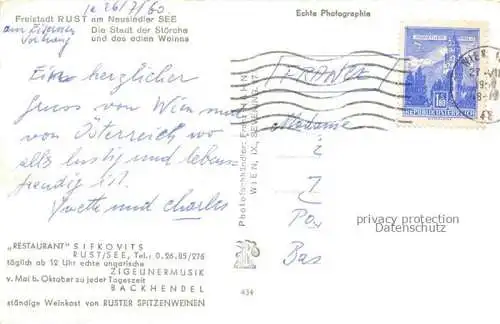 le 26/7/60.
Freistadt RUST am Neusiedler SEE
Die Stadt der Störche
und des edlen Weines
am Eisernen
Vorhang
Echte Photographie
Ein herzlicher
Gruss von Wien und
von Österreich wo
alles lustig und lebens-
freudig ist.
Yvette und Charles
„RESTAURANT" SIFKOVITS
RUST/SEE, Tel.: 0.26.85/276
täglich ab 12 Uhr echte ungarische
ZIGEUNERMUSIK
v. Mai b. Oktober zu jeder Tageszeit
BACKHENDEL
ständige Weinkost von RUSTER SPITZENWEINEN
Photofachhändler: Ernst HAHN
WIEN, IX, SEVERING. 17
434
FRANCE
Madame
Bas
REPUBLIK ÖSTERREICH
WIEN
privacy protection
Datenschutz